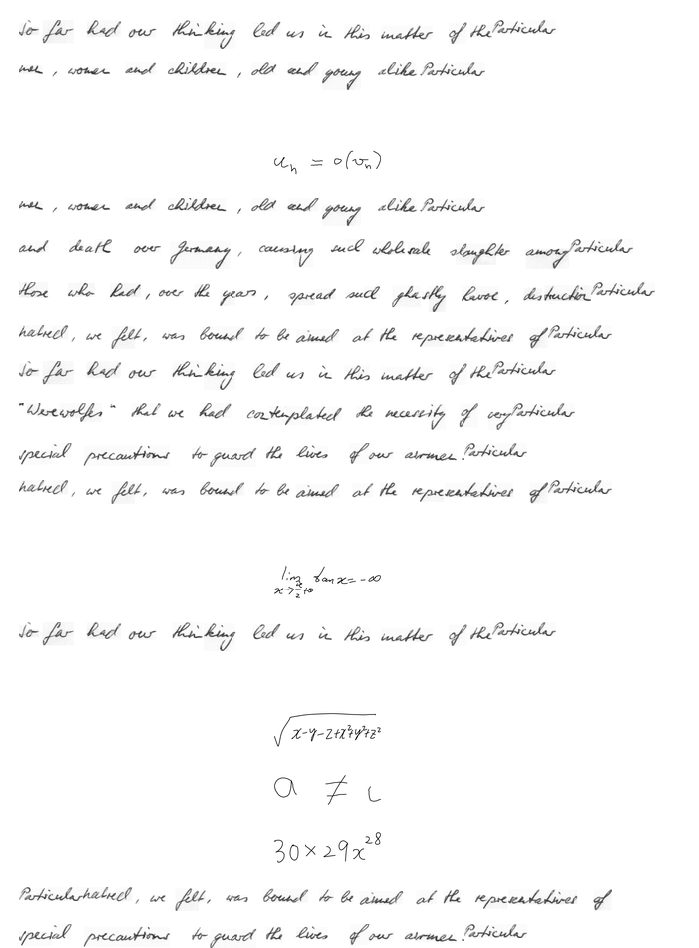 So far had our thinking led us in this matter of the Particular
men, women and children, old and young alike Particular
u_n = o(v_n)
men, women and children, old and young alike Particular
and death over Germany, causing such wholesale slaughter among Particular
those who had, over the years, spread such ghastly havoc, destruction Particular
hatred, we felt, was bound to be aimed at the representatives of Particular
So far had our thinking led us in this matter of the Particular
"Werewolfes" that we had contemplated the necessity of very Particular
special precautions to guard the lives of our airmen. Particular
hatred, we felt, was bound to be aimed at the representatives of Particular
lim_{x→π/2+0} tan x = -∞
So far had our thinking led us in this matter of the Particular
√(x-y-z+x²+y²+z²)
a ≠ c
30×29x^{28}
Particular hatred, we felt, was bound to be aimed at the representatives of
special precautions to guard the lives of our airmen. Particular